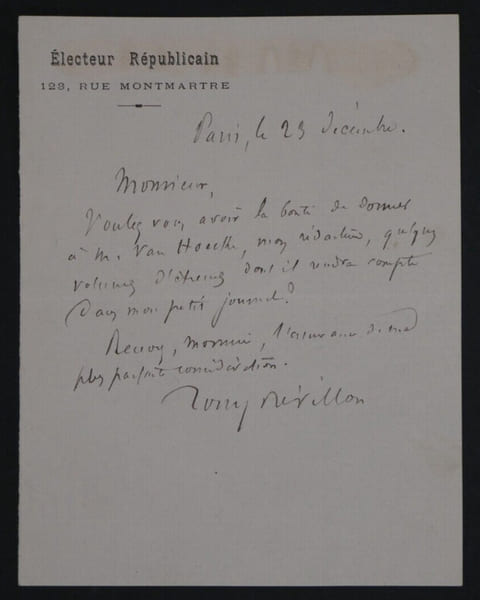 Électeur Républicain
123, RUE MONTMARTRE
Paris, le 23 décembre.
Monsieur,
Voulez vous avoir la bonté de donner
à M. Van Hoecke, mon rédacteur, quelques
volumes d'étrennes dont il rendra compte
dans mon petit journal?
Recevez, monsieur, l'assurance de ma
plus parfaite considération.
Tony Révillon